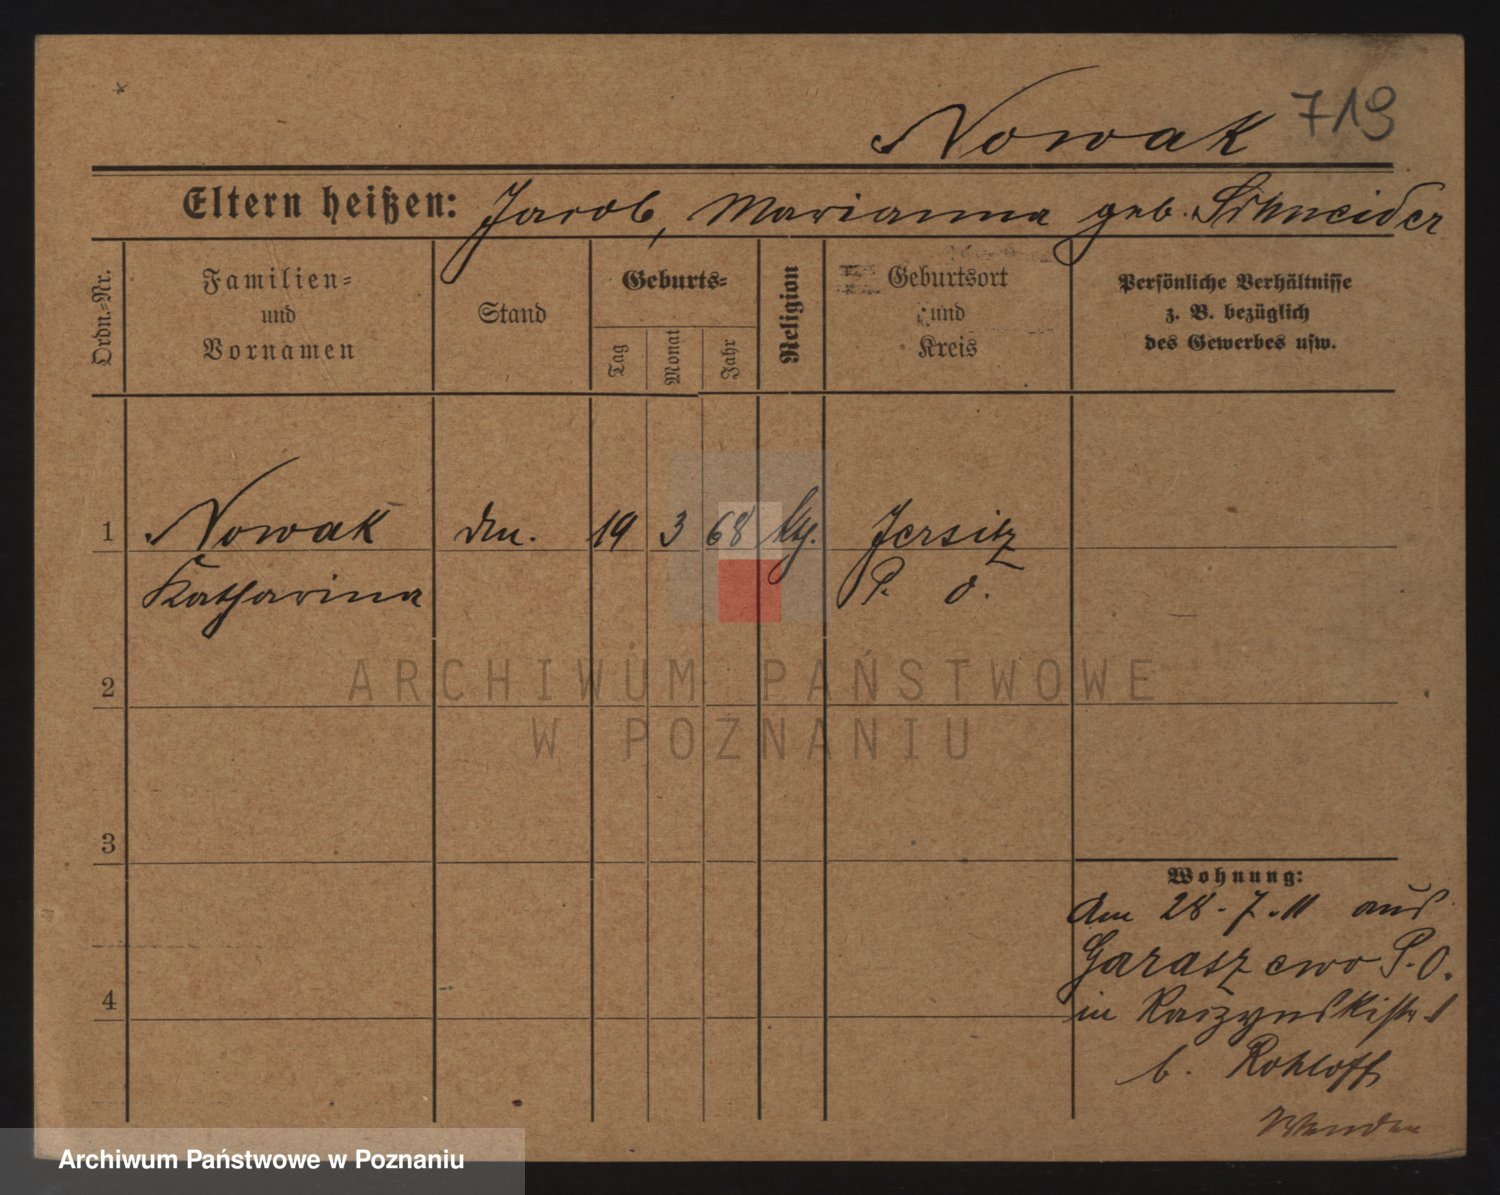 Nowak 719
Eltern heißen: Jacob, Marianna geb. Schneider
Ordn.=Nr.
Familien=
und
Vornamen
Stand
Geburts=
Tag
Monat
Jahr
Religion
Geburtsort
und
Kreis
Persönliche Verhältnisse
z. B. bezüglich
des Gewerbes usw.
1 Nowak 19 3 68 Jersitz
Katharina P. O.
2
ARCHIWUM PAŃSTWOWE
W POZNANIU
3
Wohnung:
Am 28.7.11 aus
Garaszewo P. O.
4
in Raczynskistr. 1
b. Rohloff
Archiwum Państwowe w Poznaniu